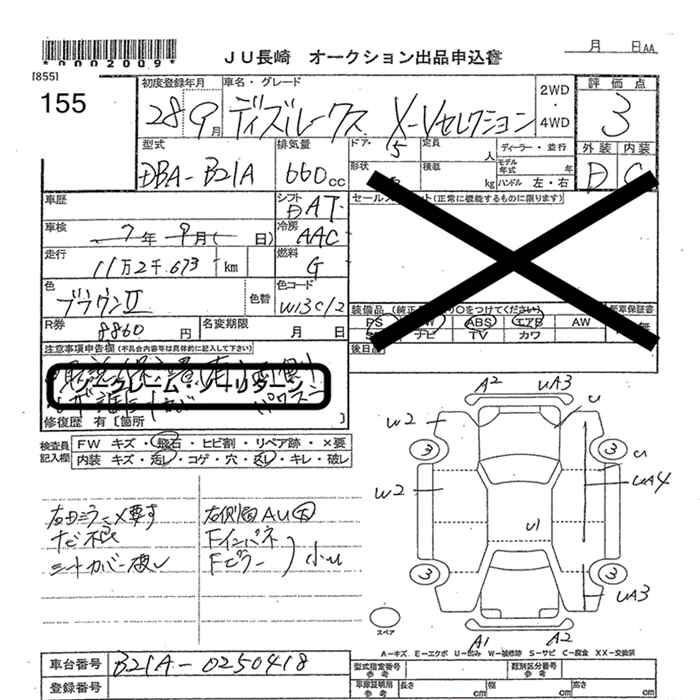 *0002009*
JU長崎 オークション出品申込書
月 日AA
[855]
155
初度登録年月
28 9月
車名・グレード
デイズルークス X-Vセレクション
2WD
・
4WD
評価点
3
外装 内装
D C
型式
DBA-B21A
排気量
660cc
ドア・
5
形状
定員
人
積載
kg
ディーラー・並行
モデル年式 年
ハンドル 左・右
車歴
シフト
AT
セールスポイント(正常に機能するものに限ります)
車検
7年 9月( 日)
冷房
AAC
走行
11万2千.673 km
燃料
G
色
ブラウンII
色替
色コード
R券
8860 円
名変期限
月 日
装備品
PS
ABS
エアB
AW
ナビ
TV
カワ
無
後日品
注意事項申告欄(不具合内容等は具体的に記入して下さい)
ノークレーム・ノーリターン
修復歴 有[箇所 ]
検査員記入欄
FW キズ・飛石・ヒビ割・リペア跡・×要
内装 キズ・汚レ・コゲ・穴・スレ・キレ・破レ
右ドミラー×要す
ナビ不良
シートカバー破レ
右側面AU
Fインパネ
Fピラー
小u
A2
UA3
U
W2
W2
U
UA4
U1
3
3
3
3
UA3
A1
A2
スペア
A-キズ、E-エクボ U-凹み W-補修跡 S-サビ C-腐食 XX-交換済
車台番号
B21A-0250418
登録番号
型式指定番号
参考
類別区分番号
参考
車庫証明用
参考
長さ cm
幅 cm
高さ cm